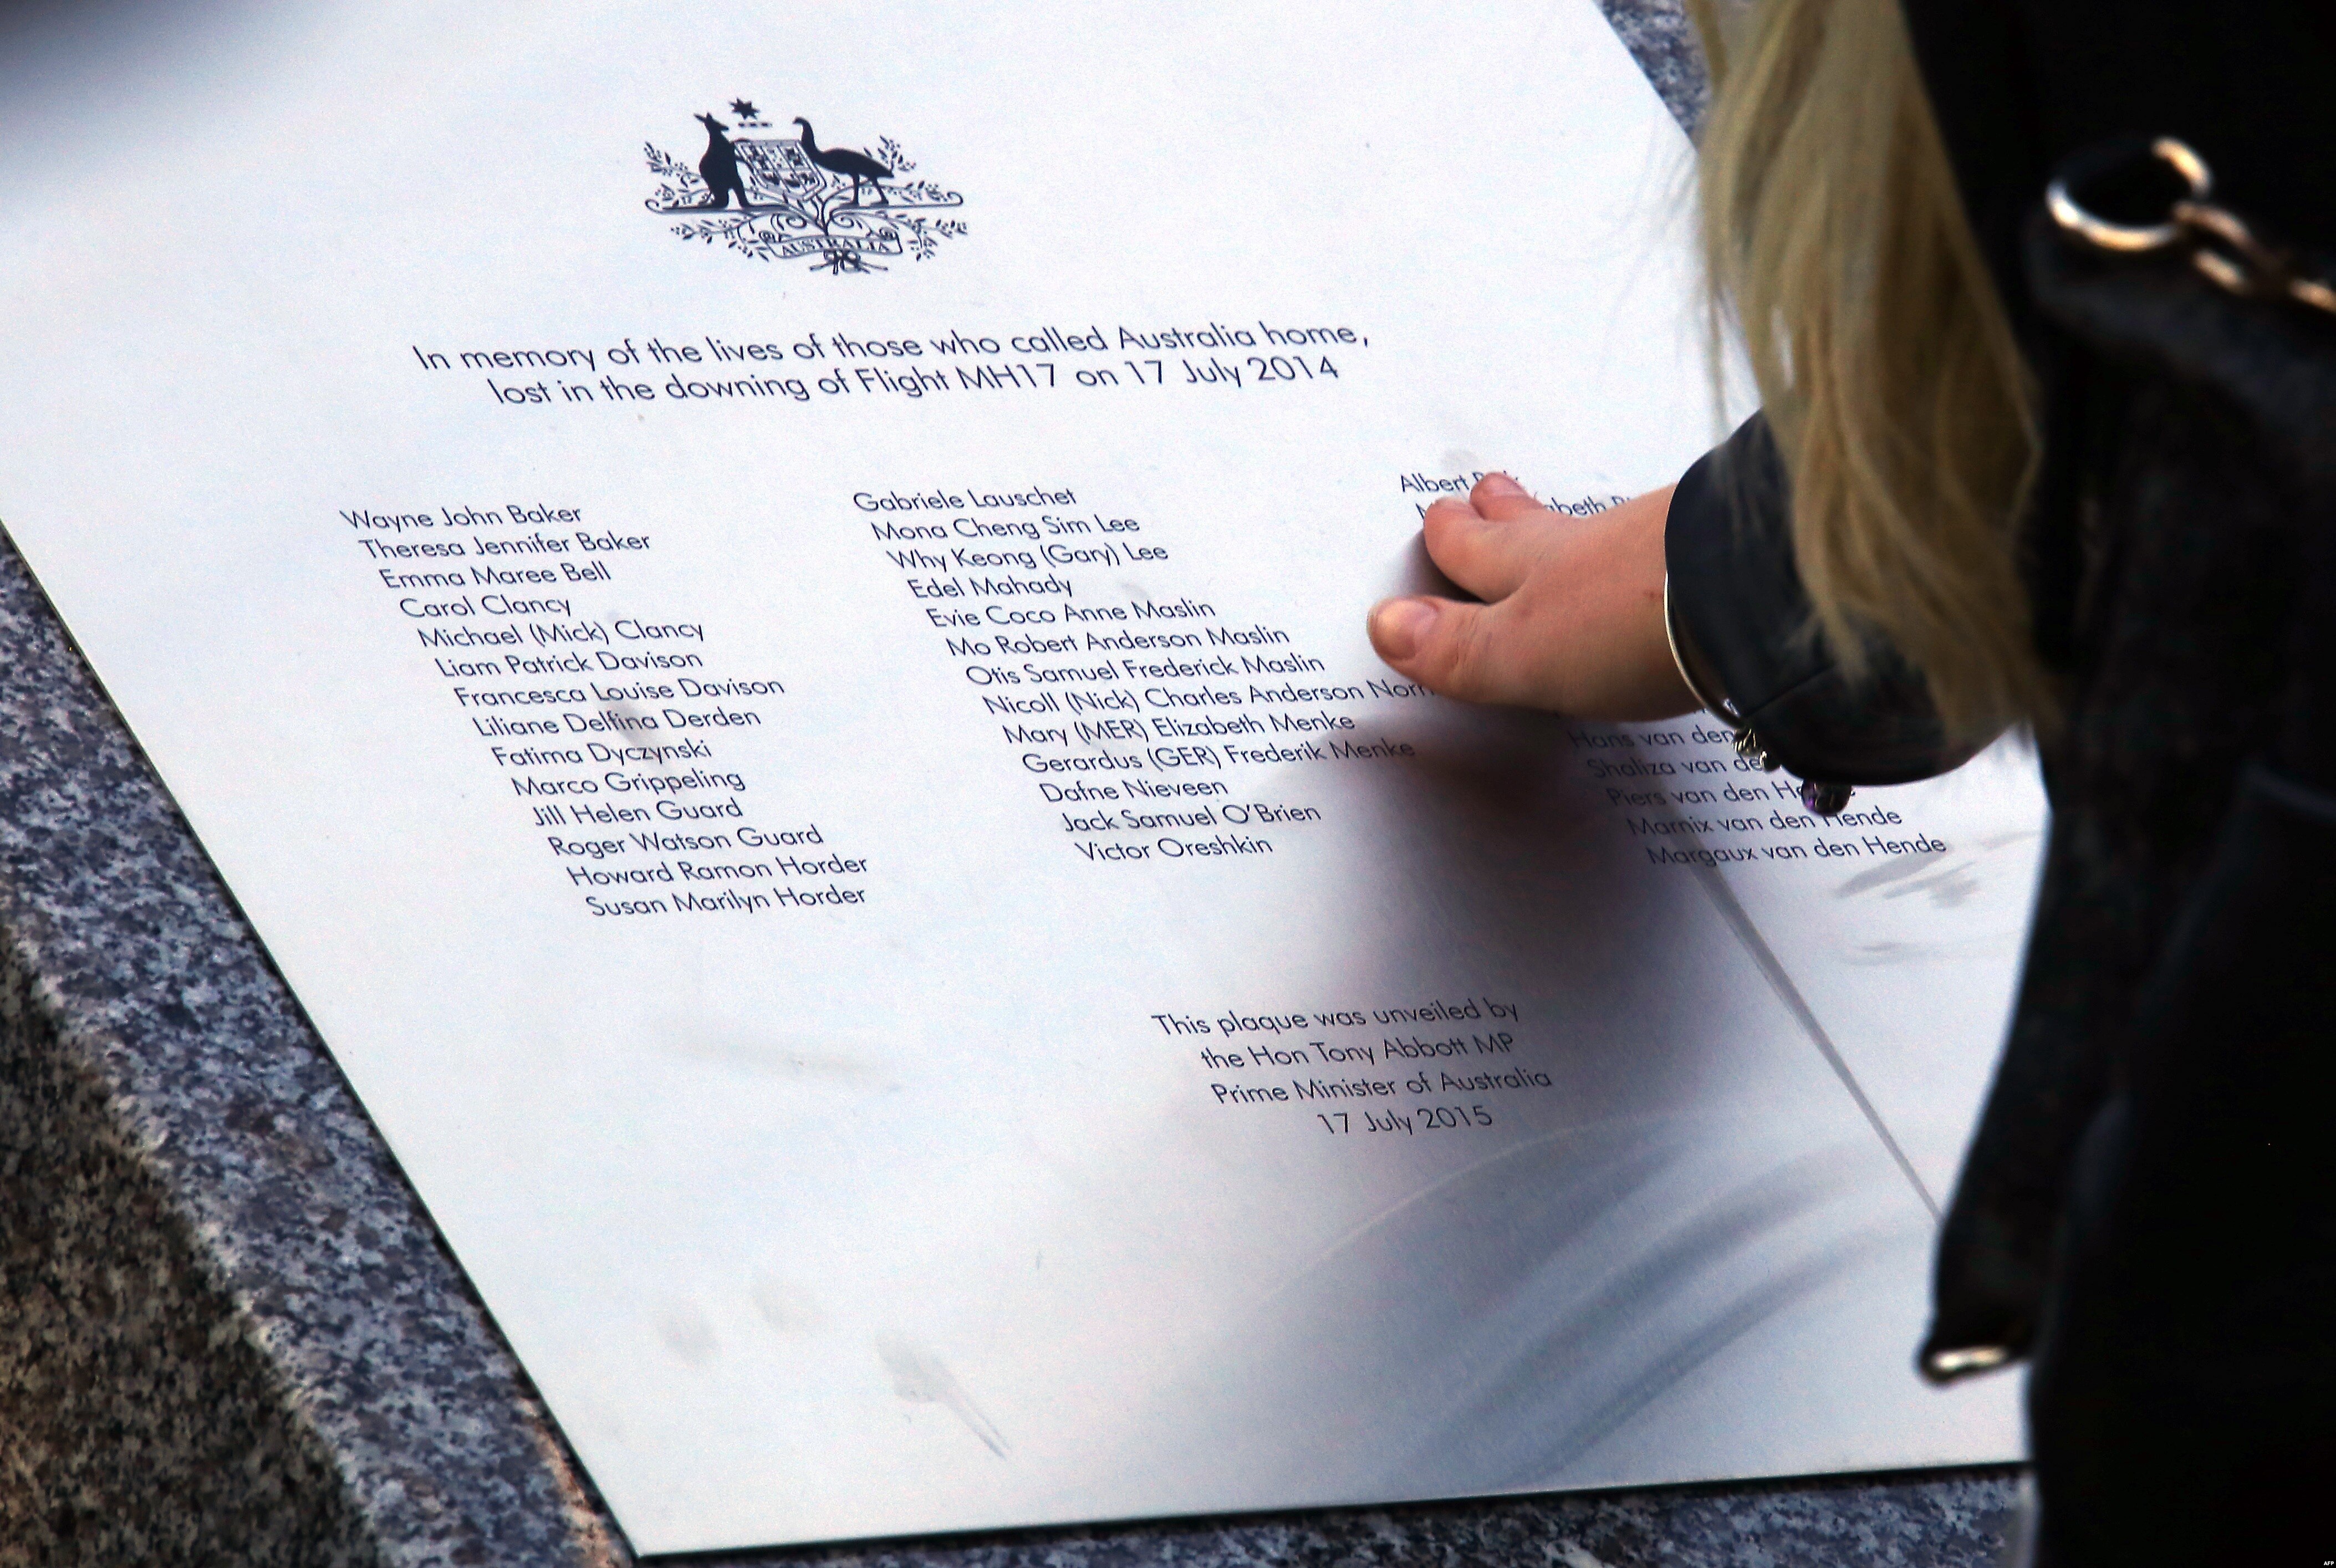 AUSTRALIA
In memory of the lives of those who called Australia home,
lost in the downing of Flight MH17 on 17 July 2014
Wayne John Baker
Theresa Jennifer Baker
Emma Maree Bell
Carol Clancy
Michael (Mick) Clancy
Liam Patrick Davison
Francesca Louise Davison
Liliane Delfina Derden
Fatima Dyczynski
Marco Grippeling
Jill Helen Guard
Roger Watson Guard
Howard Ramon Horder
Susan Marilyn Horder
Gabriele Lauschet
Mona Cheng Sim Lee
Why Keong (Gary) Lee
Edel Mahady
Evie Coco Anne Maslin
Mo Robert Anderson Maslin
Otis Samuel Frederick Maslin
Nicoll (Nick) Charles Anderson
Mary (MER) Elizabeth Menke
Gerardus (GER) Frederik Menke
Dafne Nieveen
Jack Samuel O'Brien
Victor Oreshkin
Albert
Hans van den
Shaliza van de
Piers van den He
Marnix van den Hende
Margaux van den Hende
This plaque was unveiled by
the Hon Tony Abbott MP
Prime Minister of Australia
17 July 2015
AFP